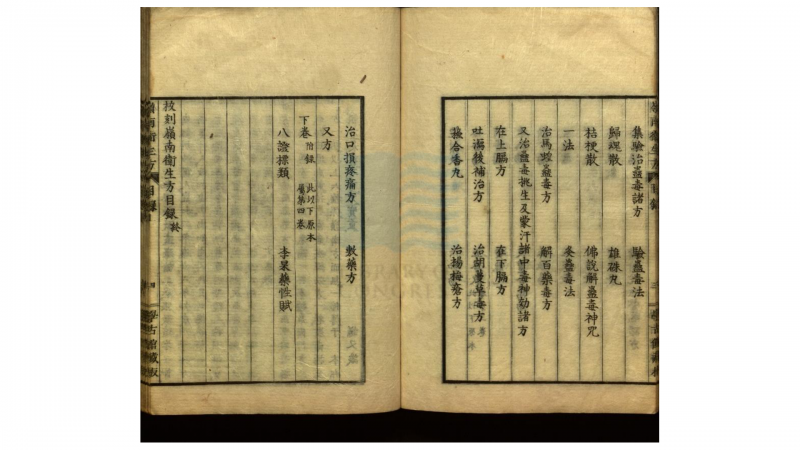 集驗治蠱毒諸方 驗蠱毒法
歸魂散 雄硃丸
桔梗散 佛說解蠱毒神咒
一法 灸蠱毒法
治馬蝗蠱毒方 解百藥毒方
又治蠱毒挑生及蒙汗諸中毒神効諸方
在上膈方 在下膈方
吐瀉後補治方 治胡蔓草毒方
蘇合香丸 治楊梅瘡方
治口損疼痛方 敷藥方
又方
下卷 附錄 此以下原本屬第四卷
八證標類 李杲藥性賦
校刻嶺南衞生方目錄 終
嶺南衞生方 目錄 四
學古館藏板